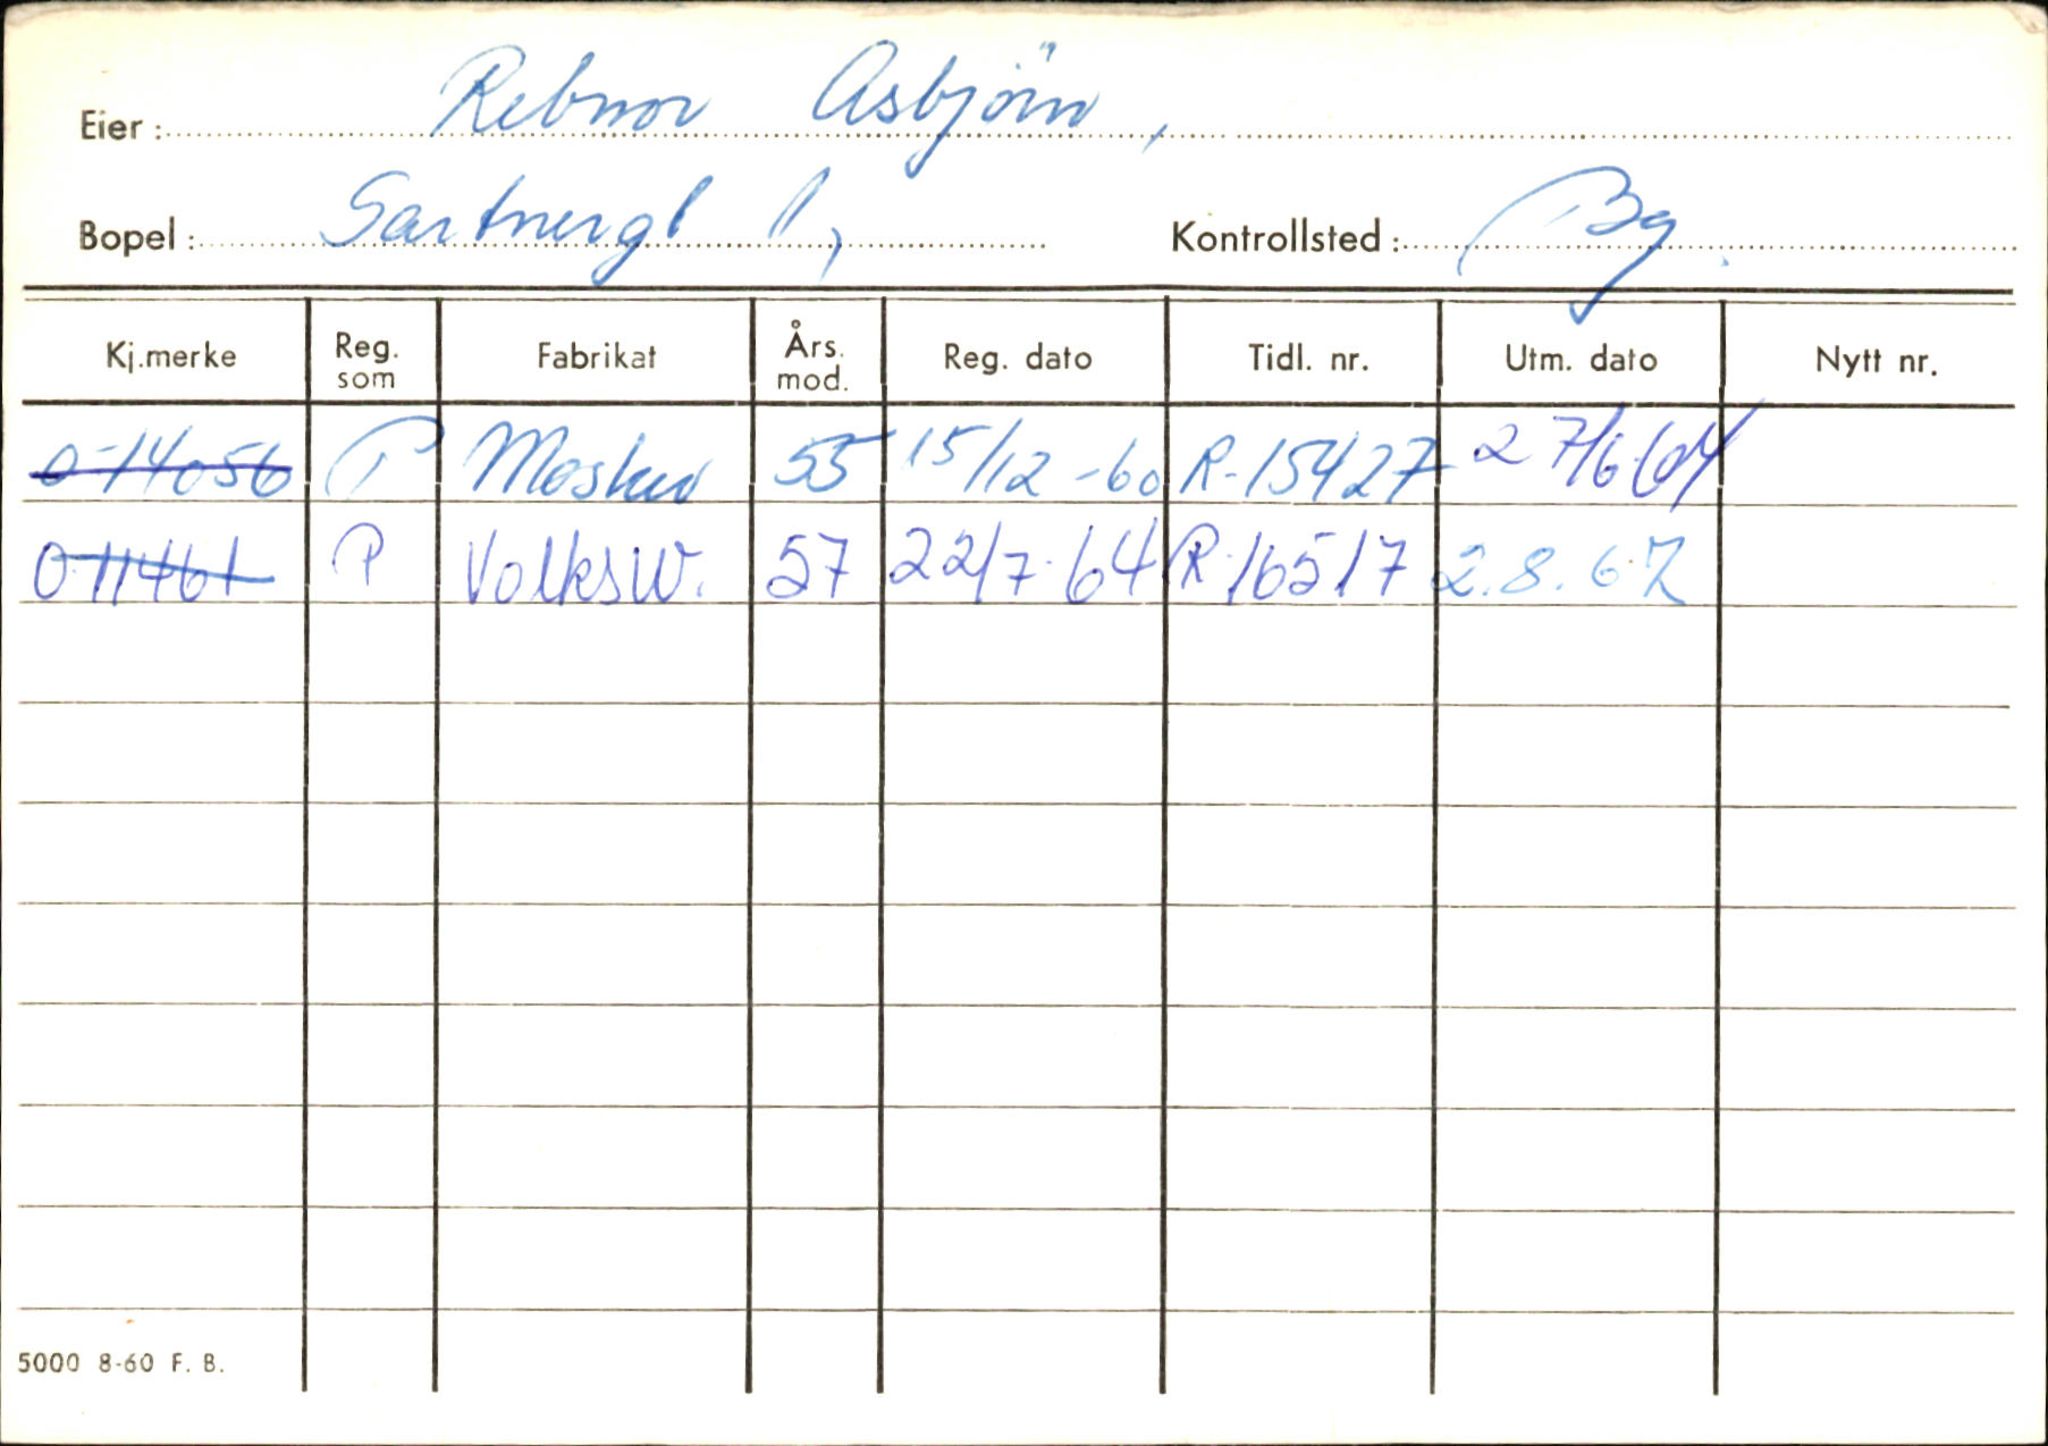 Eier : Rebnor Asbjörn,
Bopel : Gartnergt 1, Kontrollsted : Bg.
Kj.merke Reg. som Fabrikat Års. mod. Reg. dato Tidl. nr. Utm. dato Nytt nr.
O-14056 P Moskw 55 15/12-60 R-15427 27/6-64
O-11461 P VolksW. 57 22/7-64 R-16517 2.8.67
5000 8-60 F. B.